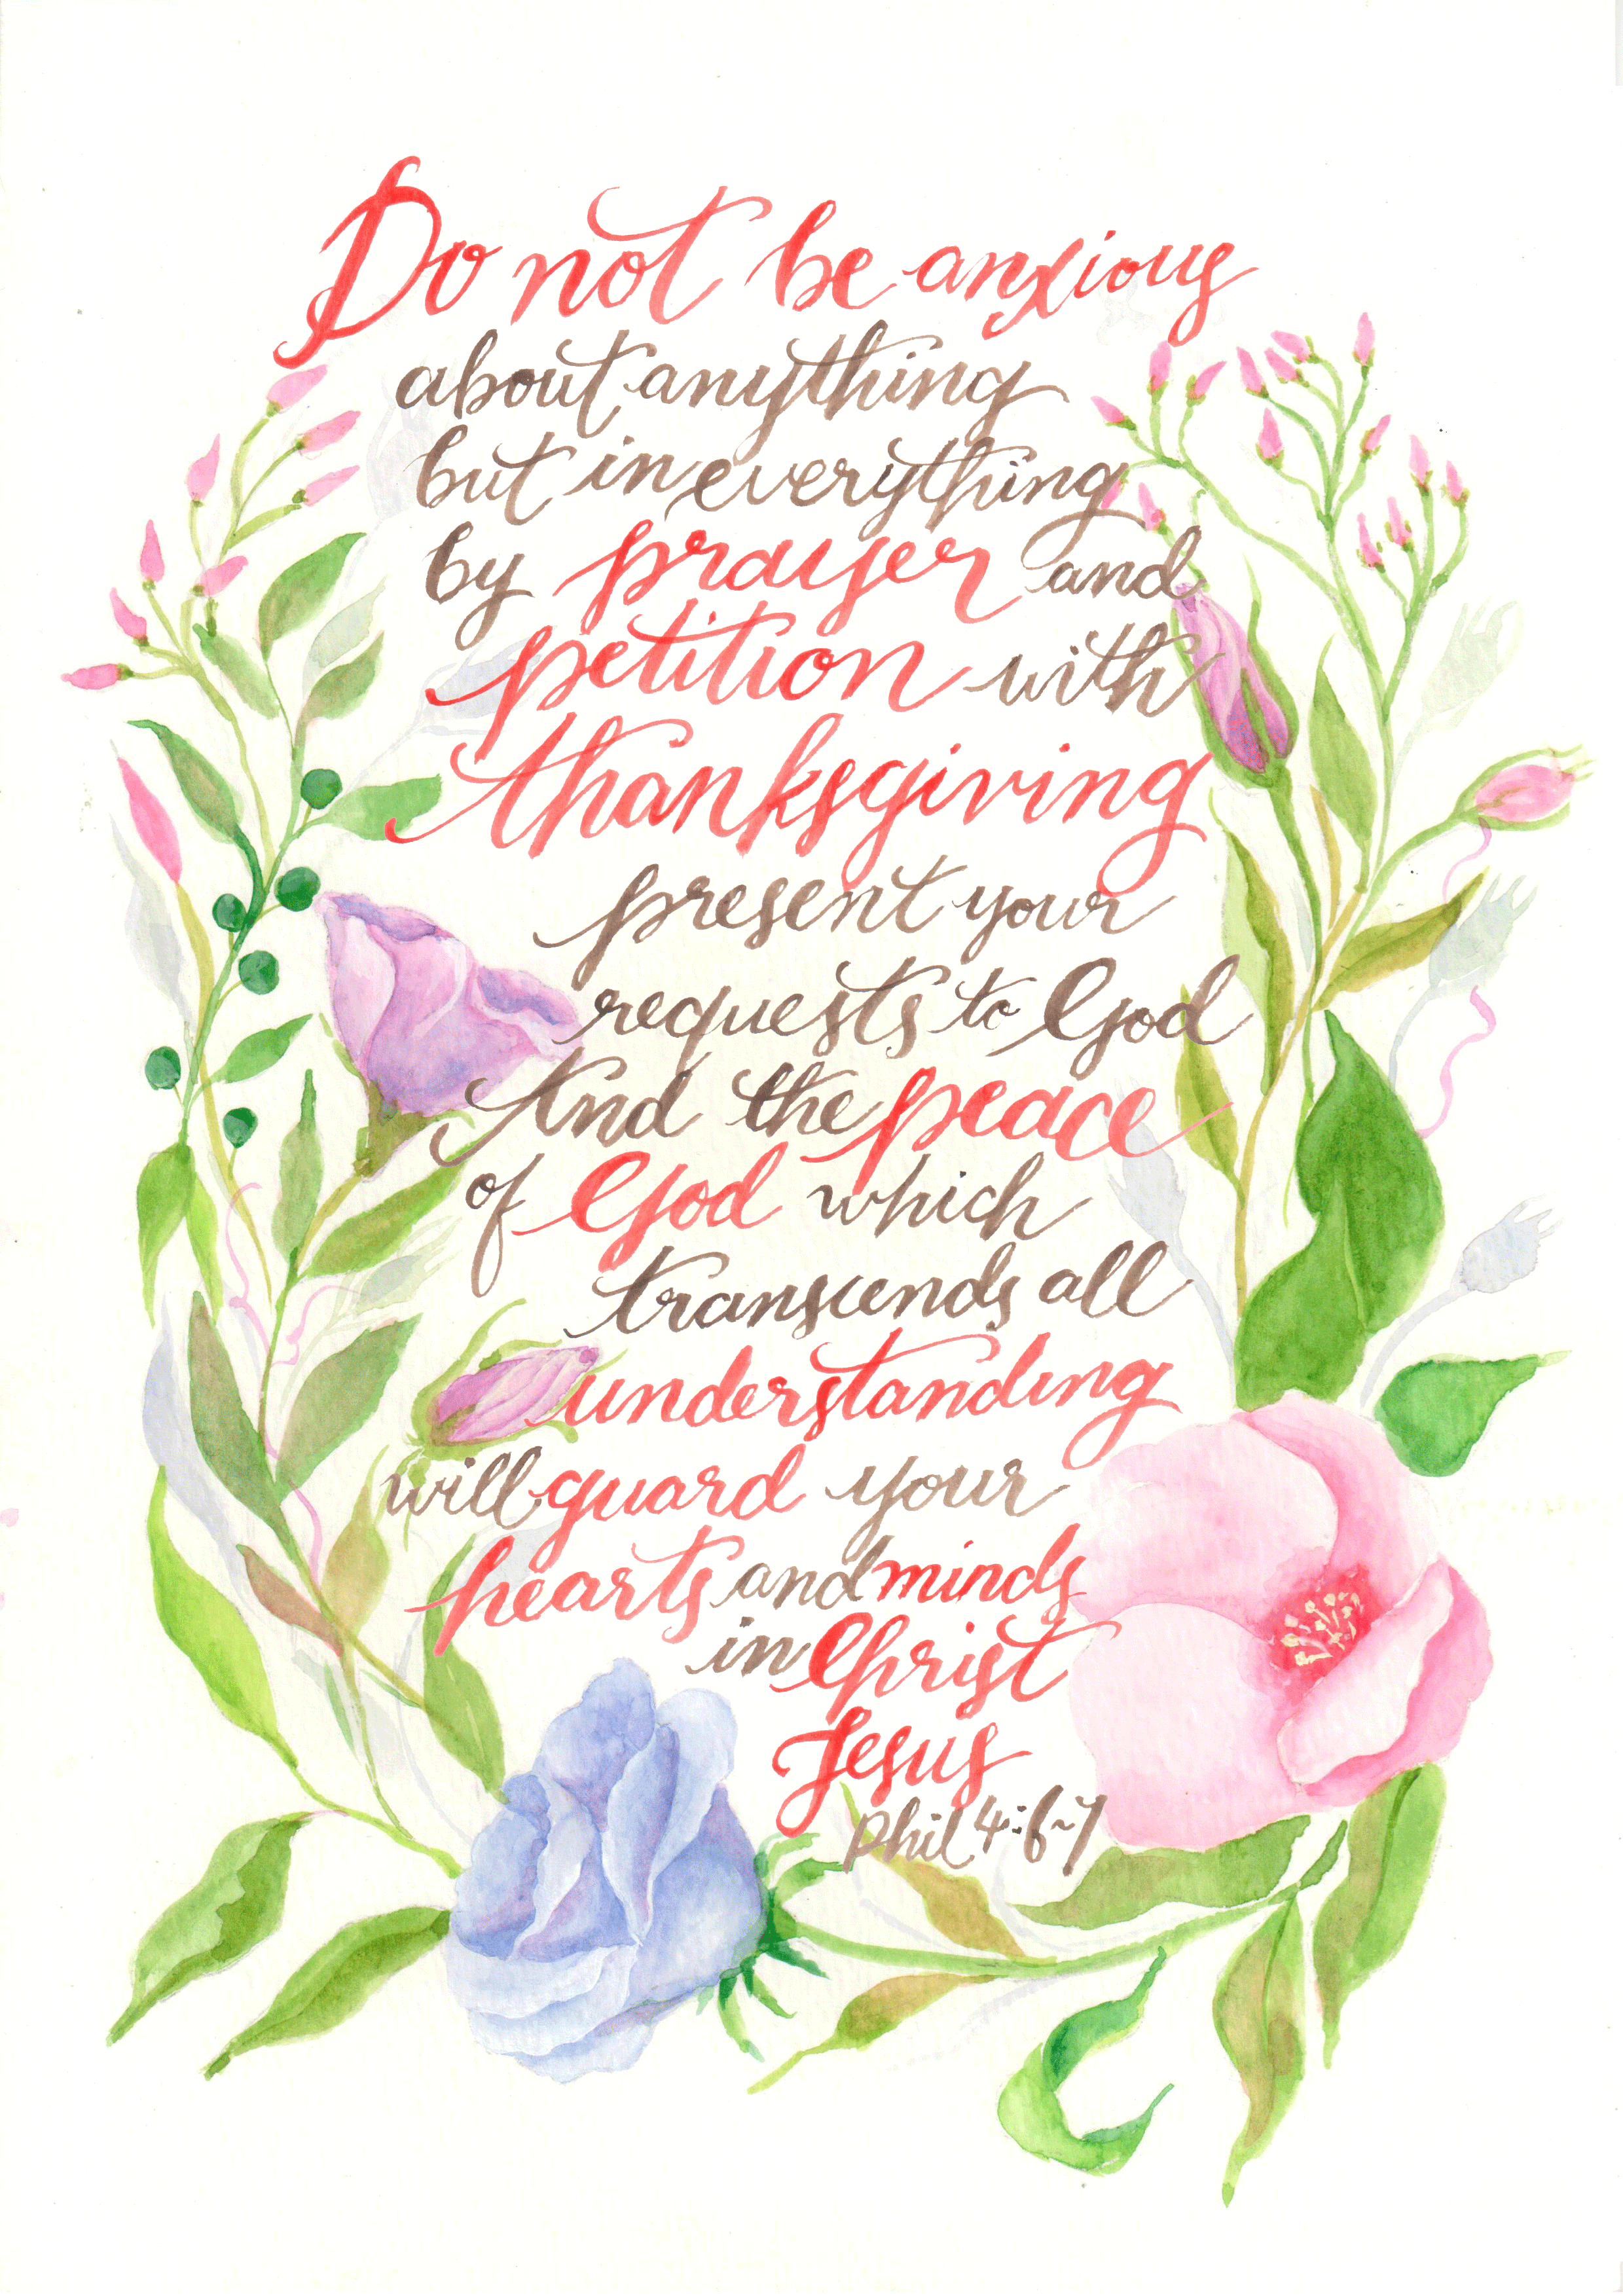 Do not be anxious
about anything
but in everything
by prayer and
petition with
thanksgiving
present your
requests to God
And the peace
of God which
transcends all
understanding
will guard your
hearts and minds
in Christ
Jesus
Phil 4:6~7